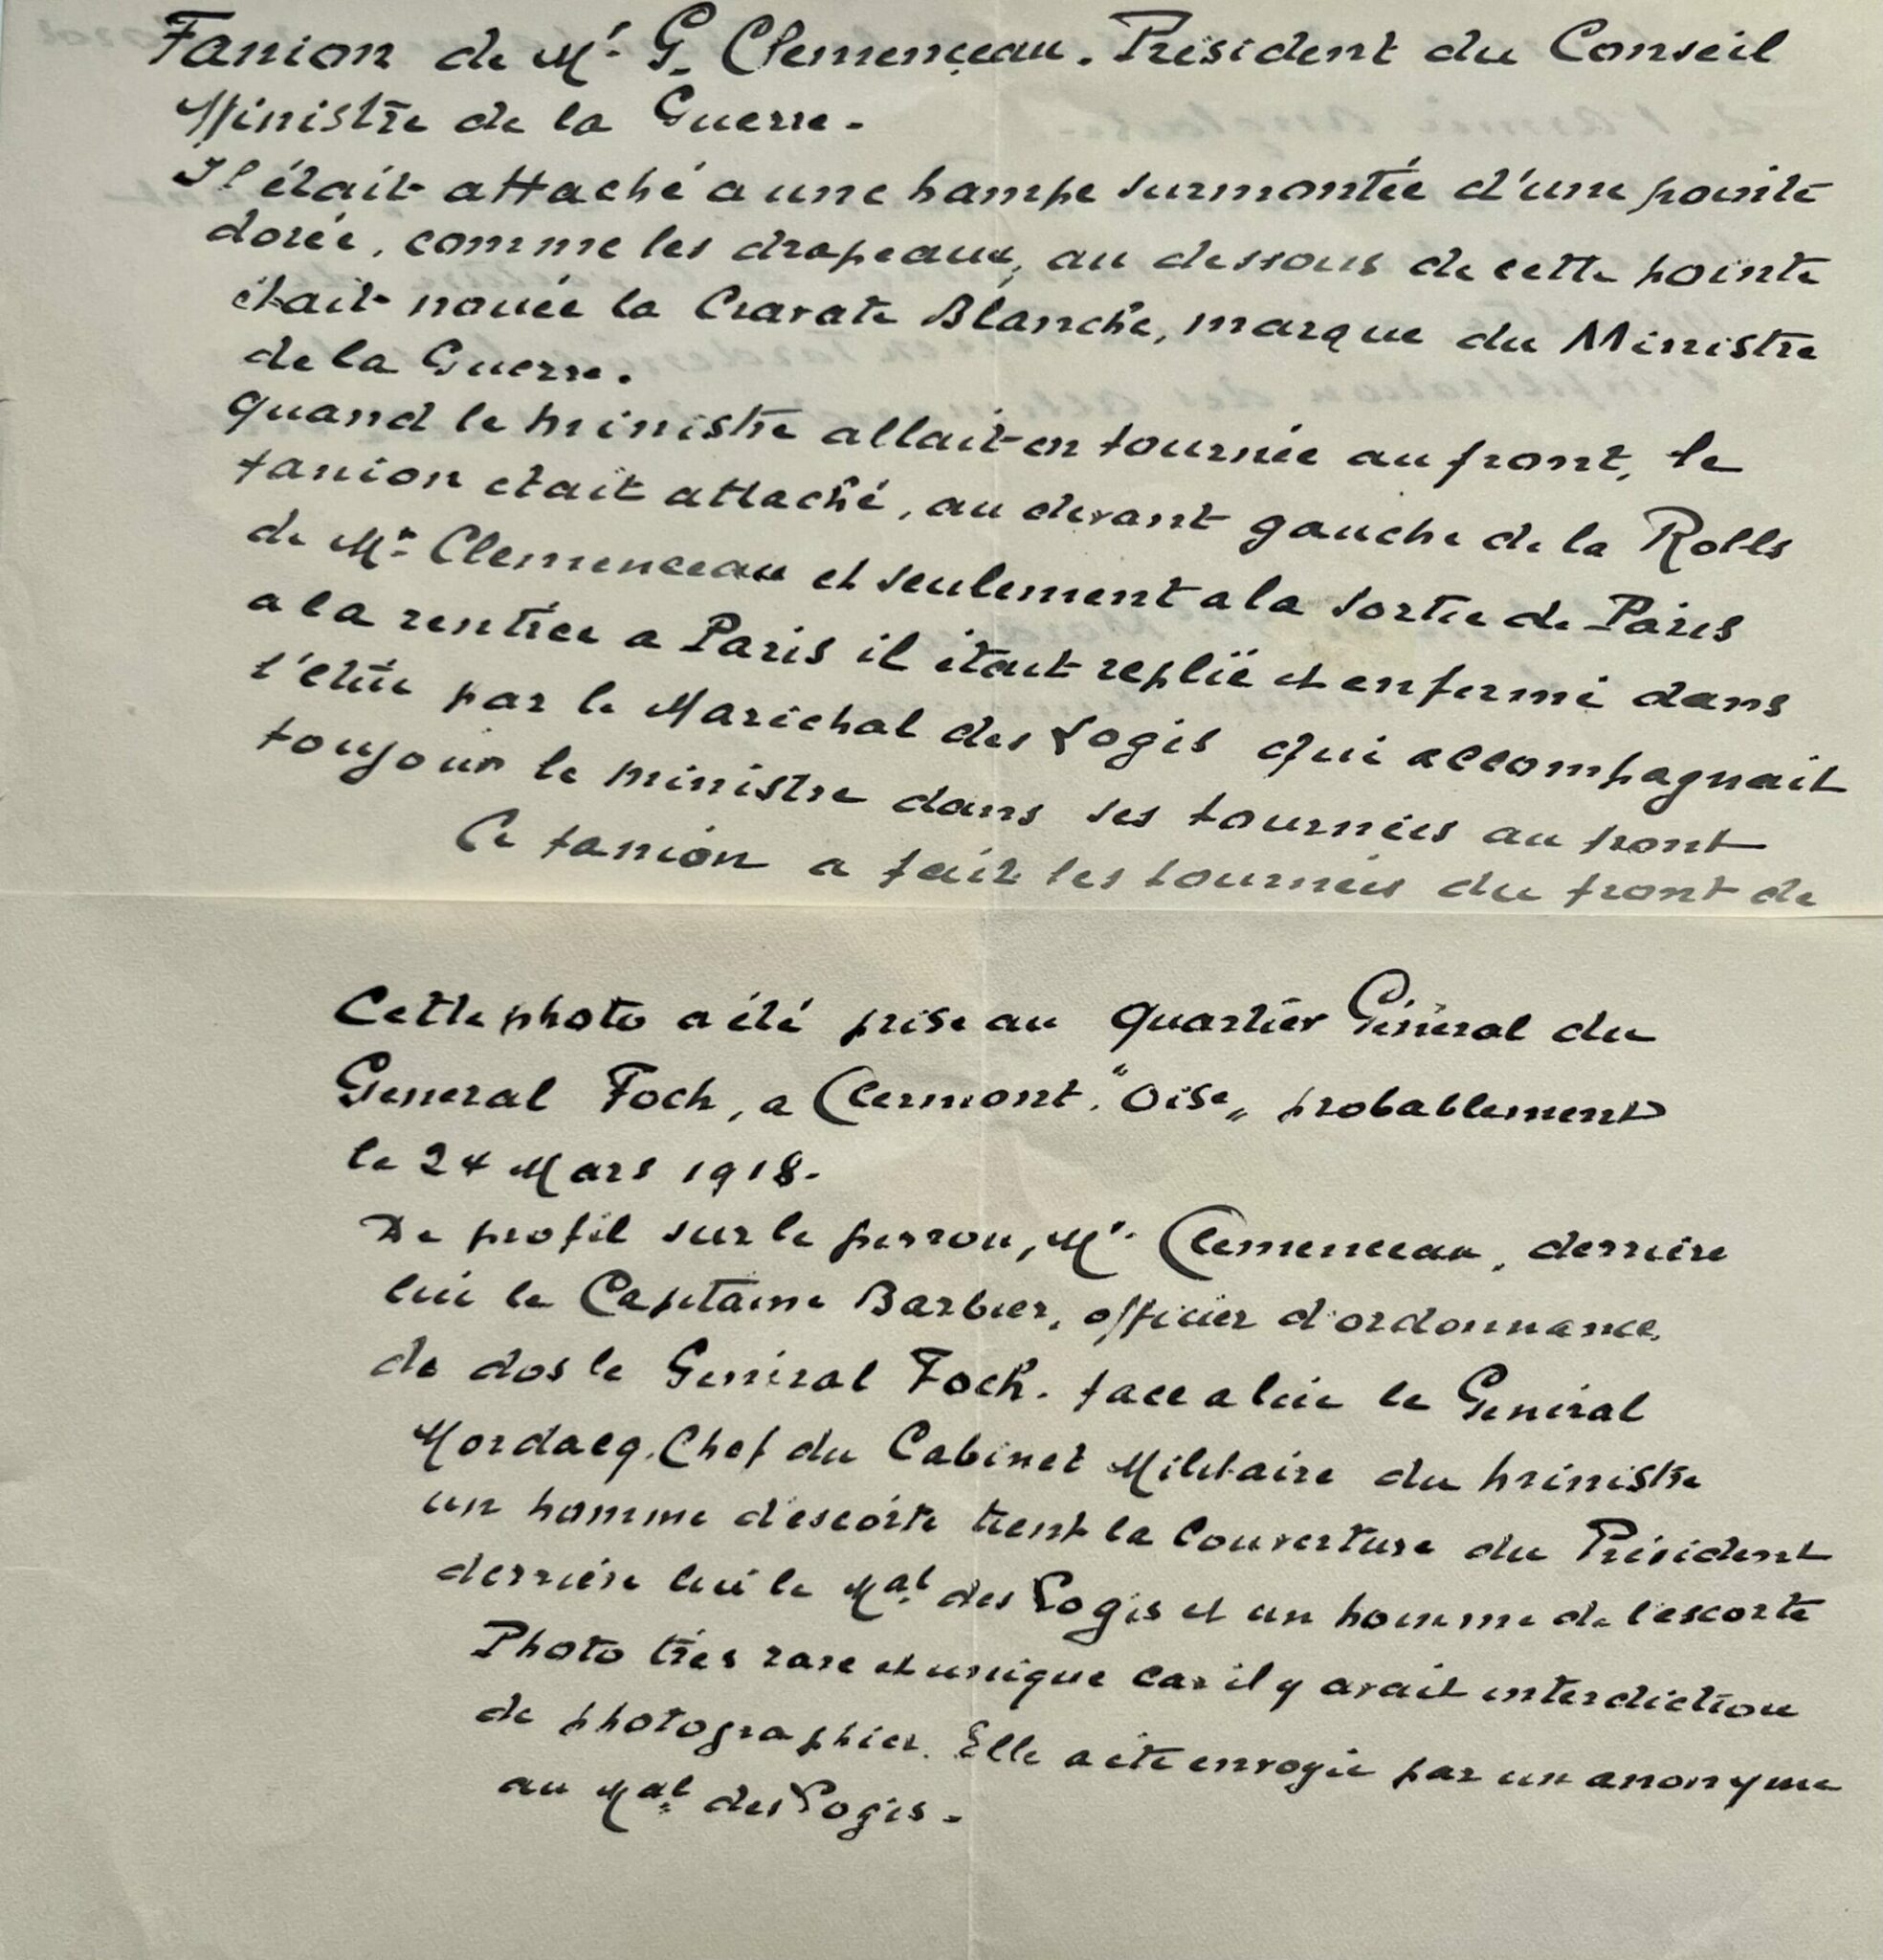 Fanion de Mr. G. Clemenceau. Président du Conseil
Ministre de la Guerre.
Il était attaché a une hampe surmontée d'une pointe
dorée, comme les drapeaux, au dessous de cette pointe
était nouée la Cravate Blanche, marque du Ministre
de la Guerre.
quand le ministre allait en tournée au front, le
fanion etait attaché, au devant gauche de la Rolls
de Mr. Clemenceau et seulement a la sortie de Paris
a la rentrée a Paris il était replié et enfermé dans
l'étui par le Maréchal des Logis qui accompagnait
toujours le ministre dans ses tournées au front
Ce fanion a fait les tournées du front de
Cette photo a été prise au quartier Général du
General Foch, a Clermont. "Oise" probablement
le 24 Mars 1918.
De profil sur le perron, Mr. Clemenceau, derriere
lui le Capitaine Barbier, officier d'ordonnance,
de dos le Général Foch. face a lui le Général
Mordacq. Chef du Cabinet Militaire du ministre
un homme d'escorte tient la Couverture du Président
derrière lui le Mal des Logis et un homme de l'escorte
Photo très rare et unique car il y avait interdiction
de photographier. Elle a ete envoyée par un anonyme
au Mal des Logis.